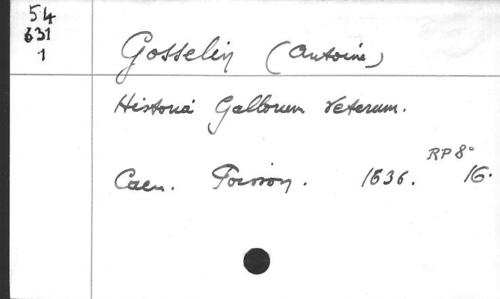 54
631
1
Gosselin (Antoine)
Historia Gallorum veterum.
RP 8°
Caen. Poisson. 1636. 16.